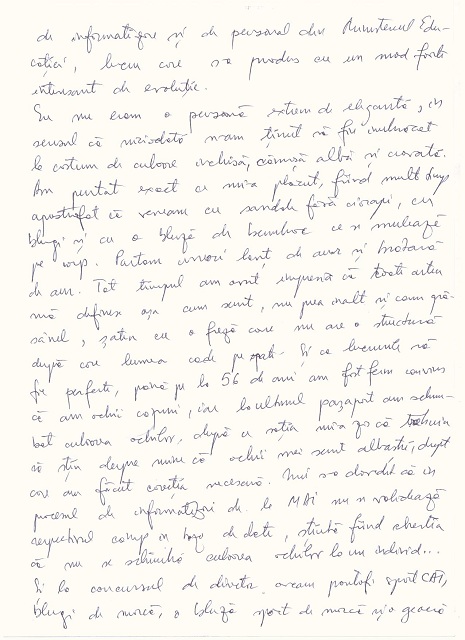 de informatizare și de personal din Ministerul Edu-
cației, lucru care s-a produs cu un mod foarte
interesant de evoluție.
Eu nu eram o persoană extrem de elegantă, în
sensul că niciodată n-am ținut să fiu îmbrăcat
la costum de culoare închisă, cămașă albă și cravată.
Am purtat exact ce mi-a plăcut, fiind mult timp
apostrofat că veneam cu sandale fără ciorapi, cu
blugi și cu o bluză de bumbac ce se mulează
pe corp. Purtam uneori lanț de aur și brățară
de aur. Tot timpul am avut impresia că toată lumea
mă definea așa cum sunt, nu prea înalt și cam gră-
sănel, șaten cu o freză care nu are o structură
după care lumea cade pe spate. Și ca lucrurile să
fie perfecte, până pe la 56 de ani am fost ferm convins
că am ochii căprui, iar la ultimul pașaport am schim-
bat culoarea ochilor, după ce soția mi-a zis că trebuia
să știu despre mine că ochii mei sunt albaștri, drept
care am făcut corecția necesară. Mi s-a dovedit că în
procesul de informatizare de la MAI nu se validează
respectivul câmp în baza de date, știută fiind chestia
că nu se schimbă culoarea ochilor la un individ...
Și la concursul de director aveam pantofi sport CAT,
blugi de marcă, o bluză sport de marcă și o geacă